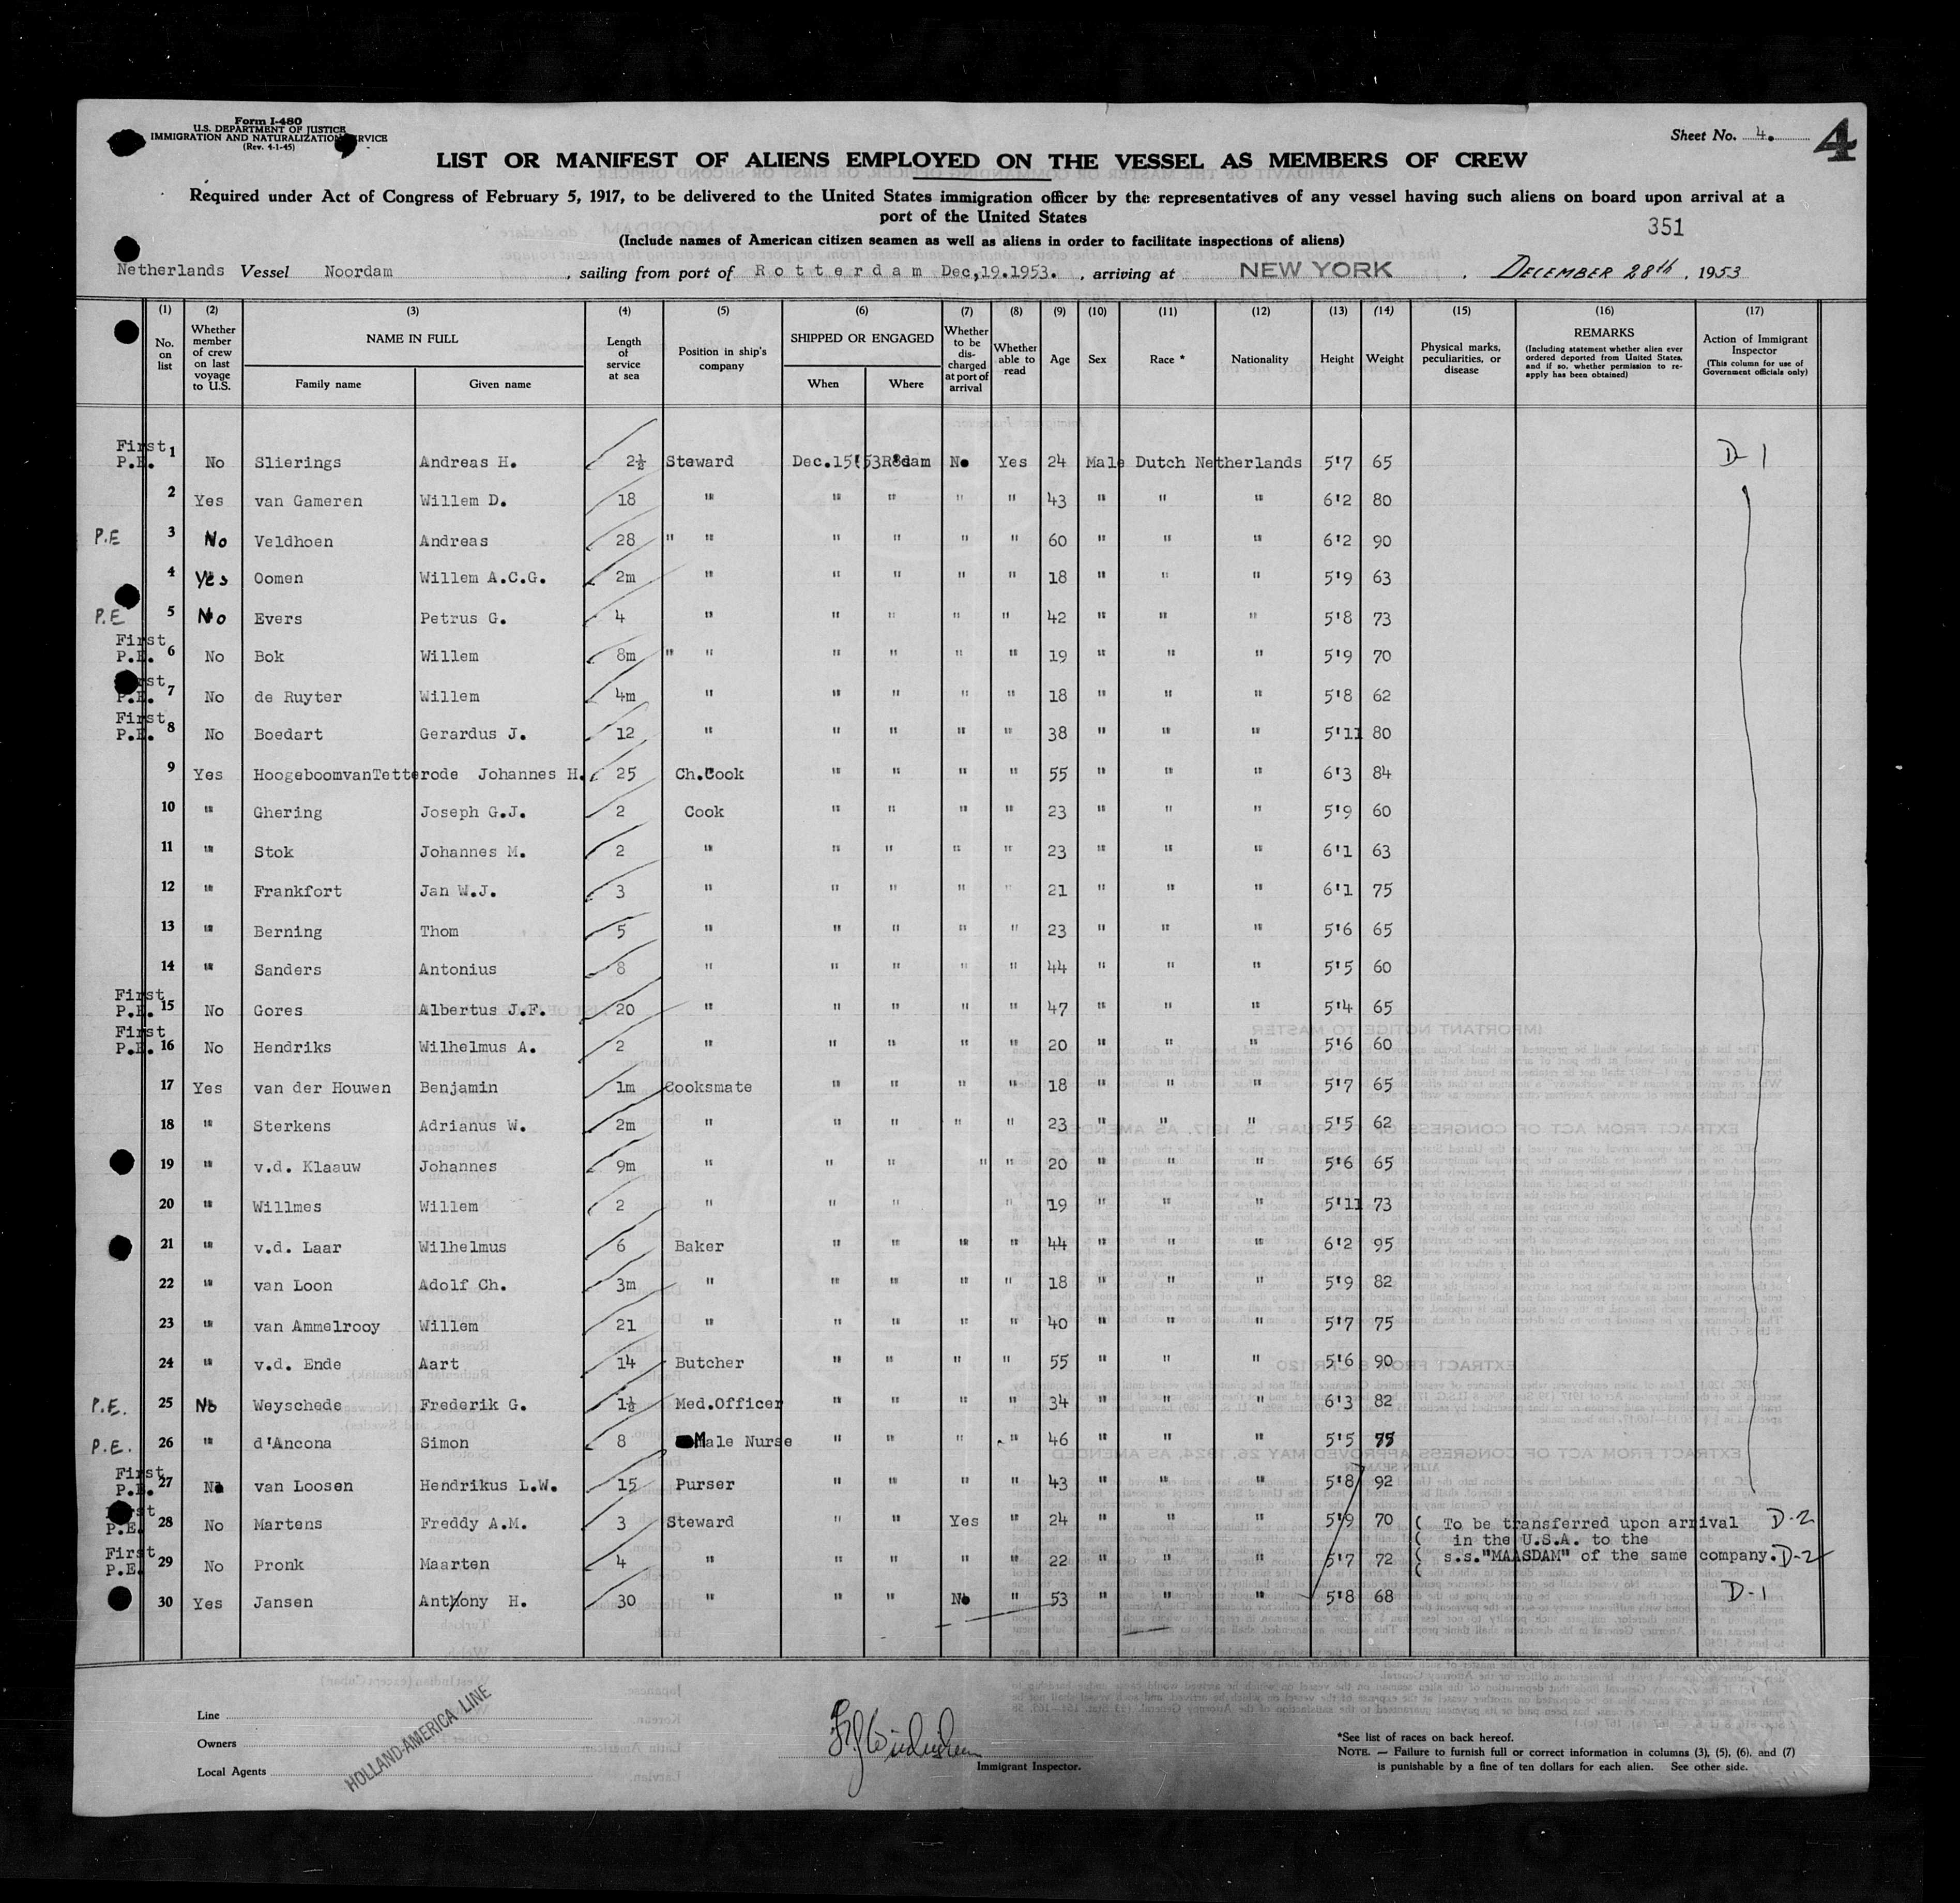 Form I-480
U.S. DEPARTMENT OF JUSTICE
IMMIGRATION AND NATURALIZATION SERVICE
(Rev. 4-1-45)
Sheet No. 4.
4
LIST OR MANIFEST OF ALIENS EMPLOYED ON THE VESSEL AS MEMBERS OF CREW
Required under Act of Congress of February 5, 1917, to be delivered to the United States immigration officer by the representatives of any vessel having such aliens on board upon arrival at a
port of the United States
351
(Include names of American citizen seamen as well as aliens in order to facilitate inspections of aliens)
Netherlands Vessel Noordam , sailing from port of Rotterdam Dec,19.1953. , arriving at NEW YORK , DECEMBER 28th , 1953
(1) (2) (3) (4) (5) (6) (7) (8) (9) (10) (11) (12) (13) (14) (15) (16) (17)
No. on list
Whether member of crew on last voyage to U.S.
NAME IN FULL
Family name Given name
Length of service at sea
Position in ship's company
SHIPPED OR ENGAGED
When Where
Whether to be discharged at port of arrival
Whether able to read
Age Sex Race * Nationality Height Weight
Physical marks, peculiarities, or disease
REMARKS
(Including statement whether alien ever ordered deported from United States, and if so, whether permission to re-apply has been obtained)
Action of Immigrant Inspector
(This column for use of Government officials only)
First P.E. 1 No Slierings Andreas H. 2½ Steward Dec.15'53 R'dam No Yes 24 Male Dutch Netherlands 5'7 65 D-1
2 Yes van Gameren Willem D. 18 " " " " " 43 " " " 6'2 80
P.E 3 No Veldhoen Andreas 28 " " " " " " 60 " " " 6'2 90
4 Yes Oomen Willem A.C.G. 2m " " " " " 18 " " " 5'9 63
P.E 5 No Evers Petrus G. 4 " " " " " 42 " " " 5'8 73
First P.E. 6 No Bok Willem 8m " " " " " " 19 " " " 5'9 70
First P.E. 7 No de Ruyter Willem 4m " " " " " 18 " " " 5'8 62
First P.E. 8 No Boedart Gerardus J. 12 " " " " " 38 " " " 5'11 80
9 Yes HoogeboomvanTetterode Johannes H. 25 Ch.Cook " " " " 55 " " " 6'3 84
10 " Ghering Joseph G.J. 2 Cook " " " " 23 " " " 5'9 60
11 " Stok Johannes M. 2 " " " " " 23 " " " 6'1 63
12 " Frankfort Jan W.J. 3 " " " " " 21 " " " 6'1 75
13 " Berning Thom 5 " " " " " 23 " " " 5'6 65
14 " Sanders Antonius 8 " " " " " 44 " " " 5'5 60
First P.E. 15 No Gores Albertus J.F. 20 " " " " " 47 " " " 5'4 65
First P.E. 16 No Hendriks Wilhelmus A. 2 " " " " " 20 " " " 5'6 60
17 Yes van der Houwen Benjamin 1m Cooksmate " " " " 18 " " " 5'7 65
18 " Sterkens Adrianus W. 2m " " " " " 23 " " " 5'5 62
19 " v.d. Klaauw Johannes 9m " " " " " 20 " " " 5'6 65
20 " Willmes Willem 2 " " " " 19 " " " 5'11 73
21 " v.d. Laar Wilhelmus 6 Baker " " " " 44 " " " 6'2 95
22 " van Loon Adolf Ch. 3m " " " " " 18 " " " 5'9 82
23 " van Ammelrooy Willem 21 " " " " " 40 " " " 5'7 75
24 " v.d. Ende Aart 14 Butcher " " " " 55 " " " 5'6 90
P.E. 25 No Weyschede Frederik G. 1½ Med.Officer " " " " 34 " " " 6'3 82
P.E. 26 " d'Ancona Simon 8 Male Nurse " " " " 46 " " " 5'5 75
First P.E. 27 No van Loosen Hendrikus L.W. 15 Purser " " " " 43 " " " 5'8 92
First P.E. 28 No Martens Freddy A.M. 3 Steward " " Yes " 24 " " " 5'9 70 ( To be transferred upon arrival D-2
( in the U.S.A. to the
First P.E. 29 No Pronk Maarten 4 " " " " " 22 " " " 5'7 72 ( s.s."MAASDAM" of the same company. D-2
30 Yes Jansen Anthony H. 30 " " " No " 53 " " " 5'8 68 D-1
Line
Owners
Local Agents
HOLLAND-AMERICA LINE
Immigrant Inspector.
*See list of races on back hereof.
NOTE. — Failure to furnish full or correct information in columns (3), (5), (6), and (7)
is punishable by a fine of ten dollars for each alien. See other side.